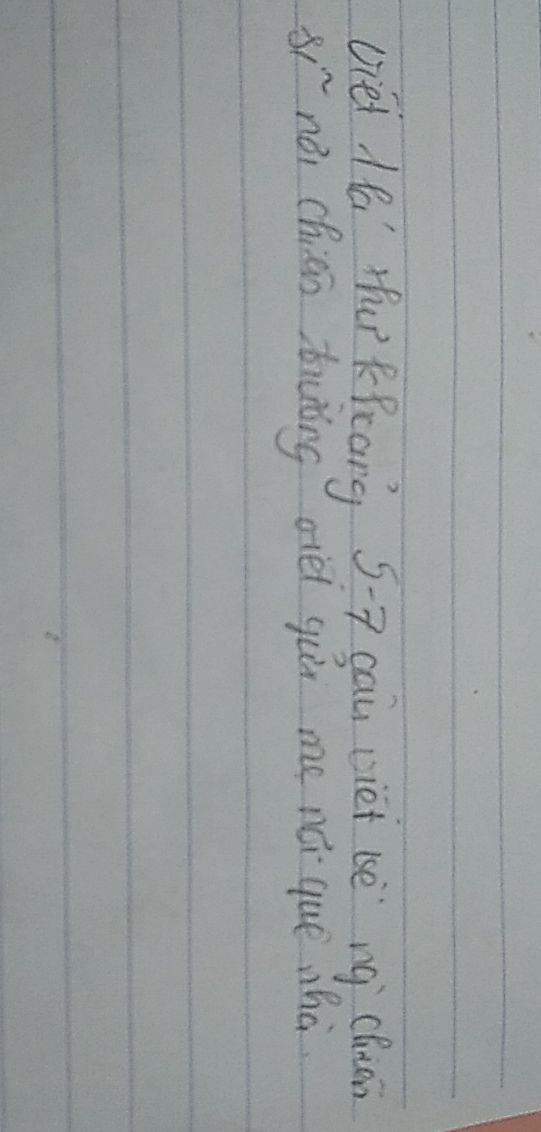 Viết 1 lá thư khoảng 5-7 câu viết về ng' chiến
sĩ nơi chiến trường viết gửi mẹ nơi quê nhà.